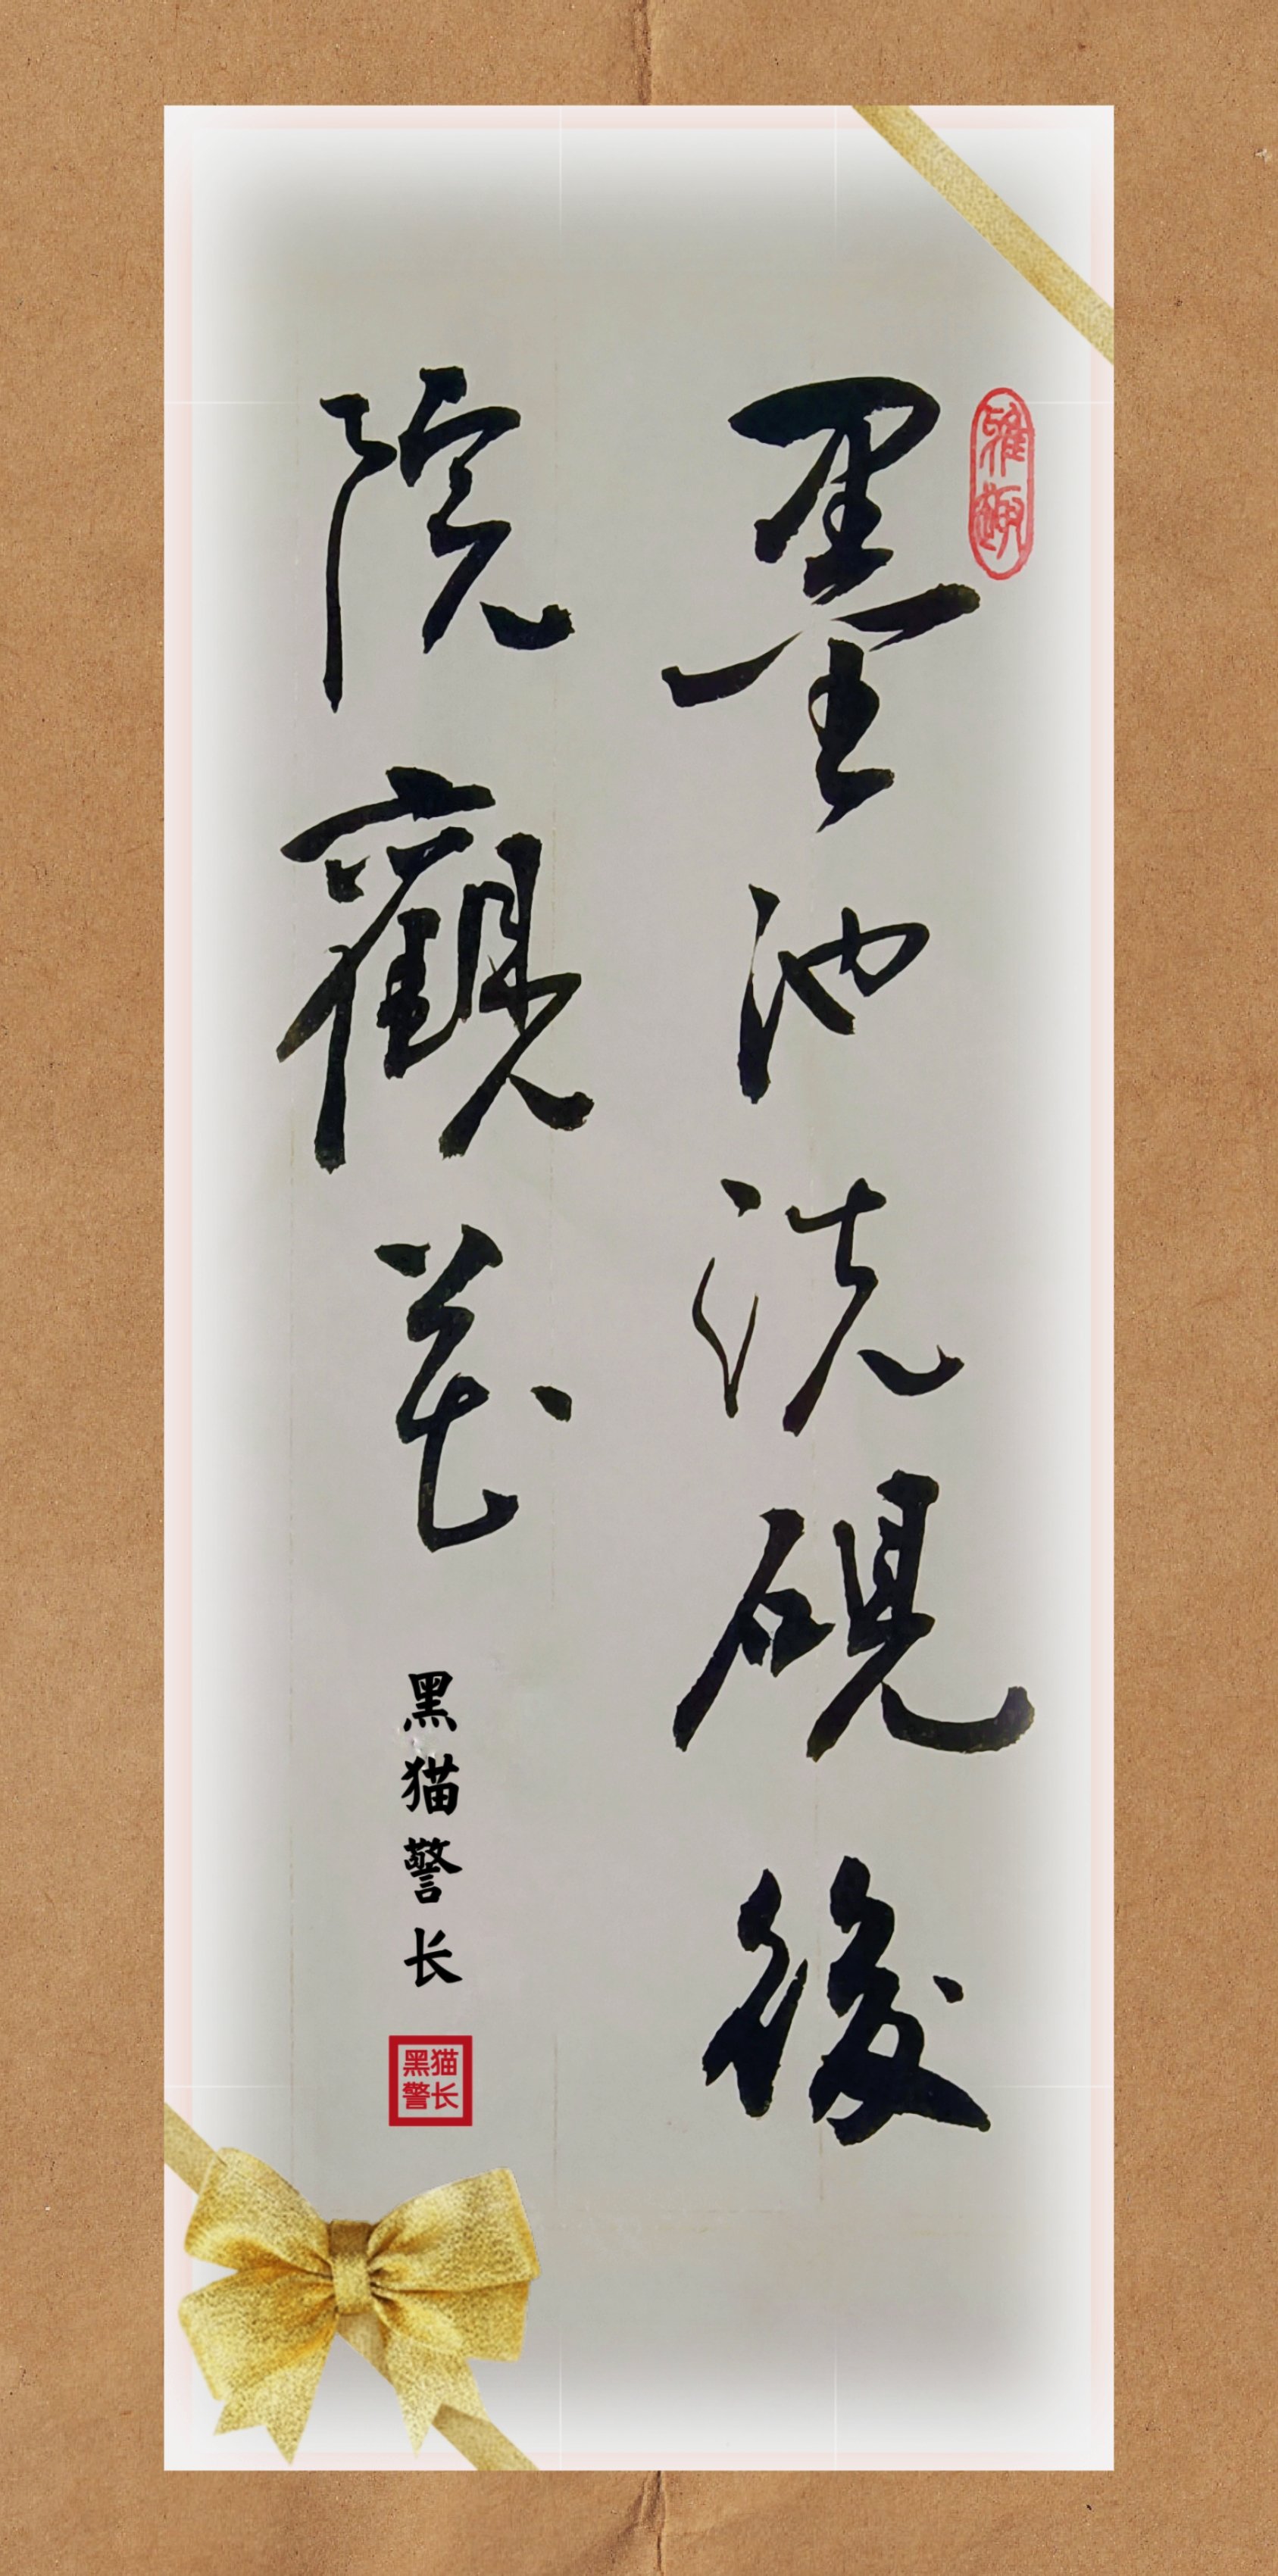 雅趣
墨池洗硯後
院觀花
黑猫警长
黑猫
警长